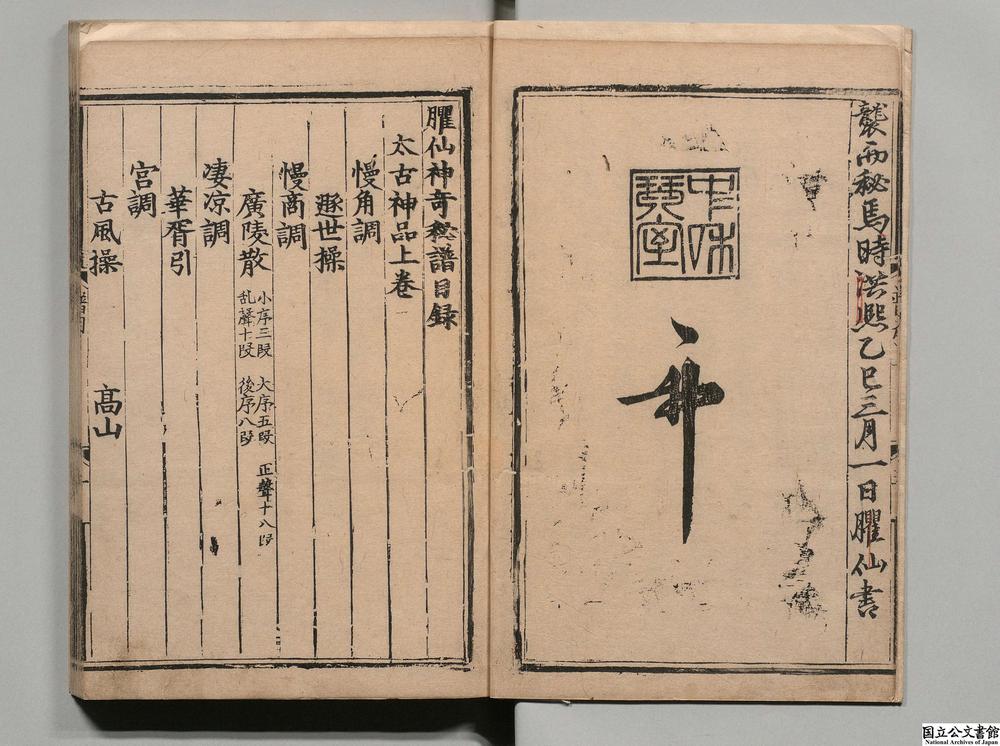 襲而秘焉時洪熙乙巳三月一日臞仙書
中和
琴室
臞仙神奇秘譜目録
太古神品上卷
慢角調
遯世操
慢商調
廣陵散 小序三段 大序五段 正聲十八段
乱聲十段 後序八段
凄凉調
華胥引
宮調
古風操 髙山
国立公文書館
National Archives of Japan